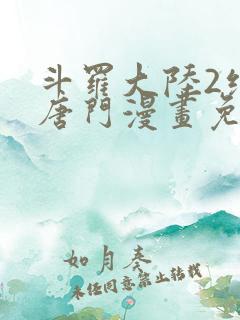 斗羅大陸2
唐門漫畫免
如月奏
未經同意禁止轉載